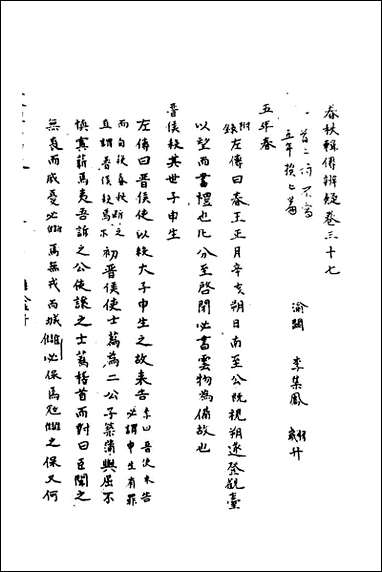 春秋輯傳辨疑卷三十七
一首二行不寫
五年
渝關 李集鳳 翽升
五年春
附錄左傳曰春王正月辛亥朔日南至公既視朔遂登觀臺
以望而書禮也凡分至啓閉必書雲物為備故也
晉侯殺其世子申生
左傳曰晉侯使以殺大子申生之故來告
必謂申生有罪
而自後春秋斷之
直謂晉侯殺焉
初晉侯使士蒍為二公子築蒲與屈不
慎寘薪焉夷吾訴之公使讓之士蒍稽首而對曰臣聞之
無喪而戚憂必讎焉無戎而城讎必保焉冦讎之保又何